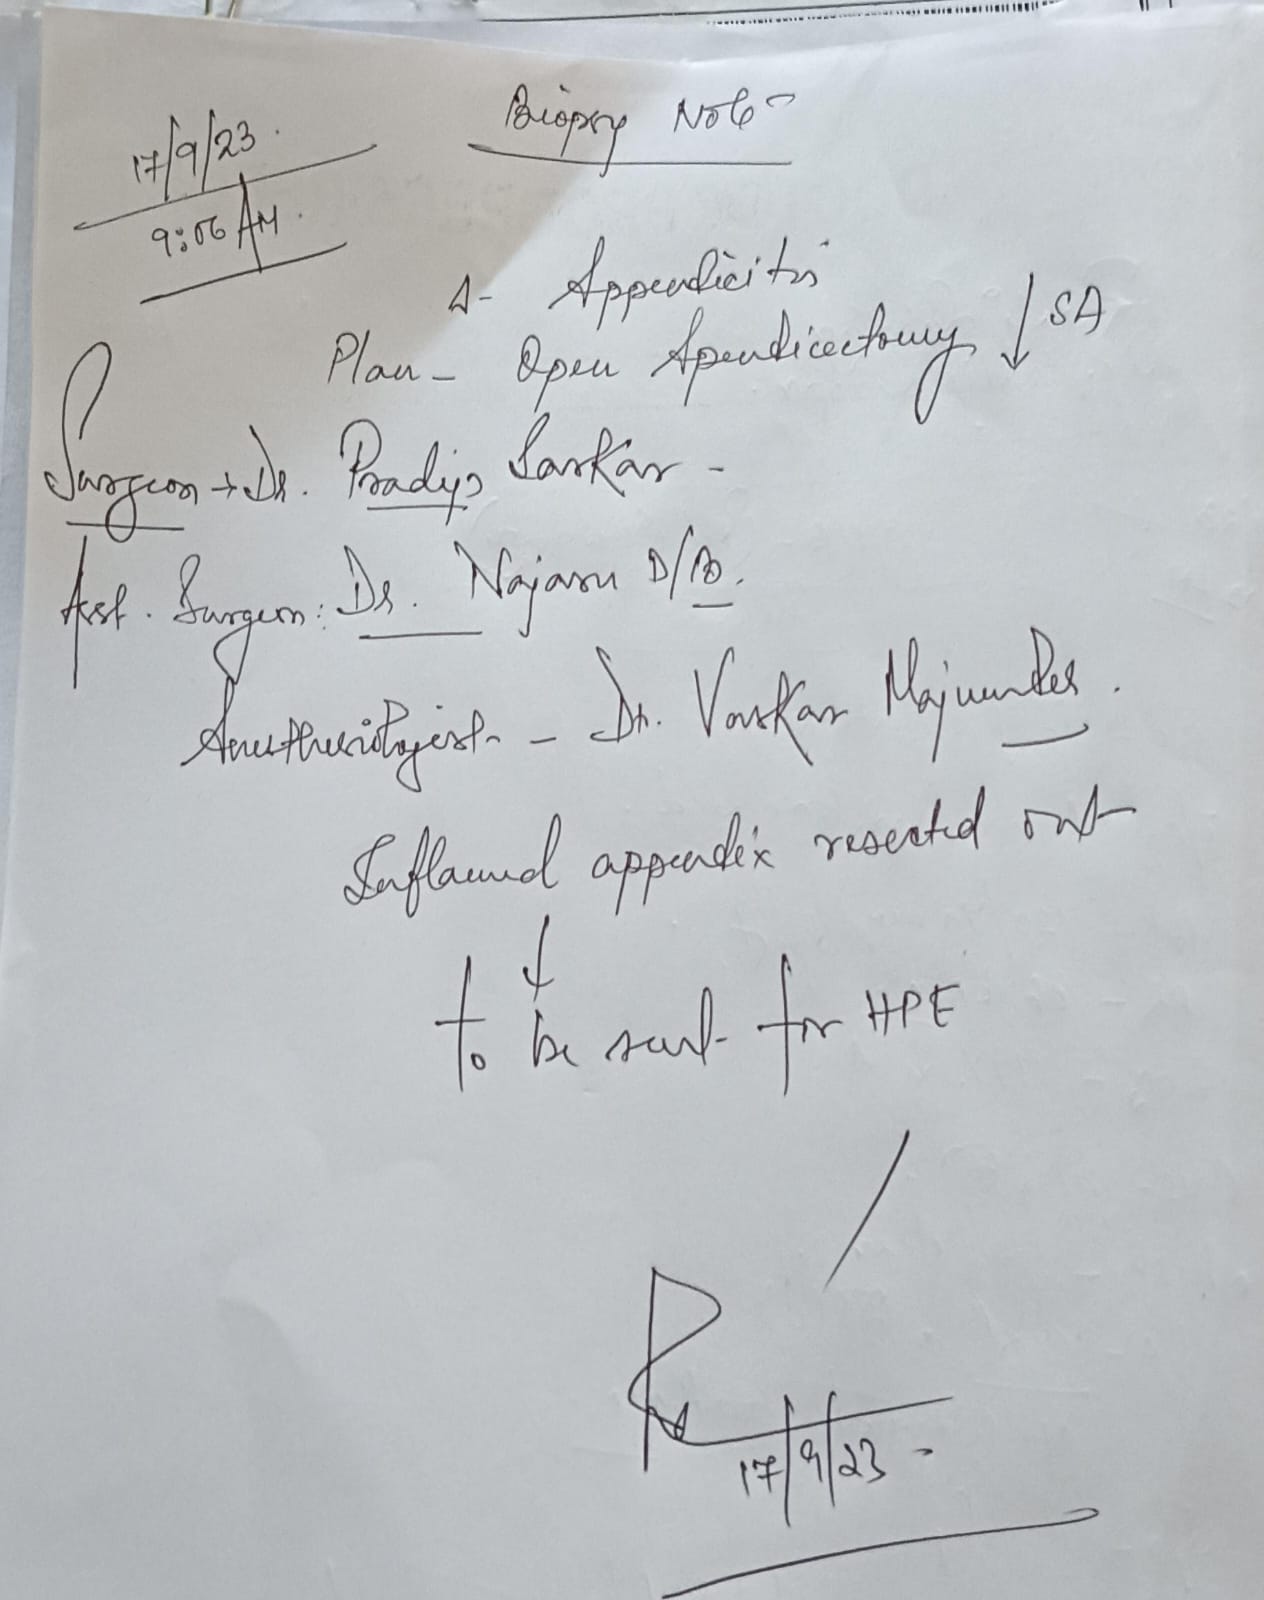 Biopsy Note
17/9/23.
9:06 AM.
Δ- Appendicitis
Plan - Open Apendicectomy ↓ SA
Surgeon → Dr. Pradip Sarkar -
Asst. Surgeon: Dr.
Anesthesiologist - Dr. Vaskar Majumder.
Inflamed appendix resected out
↓
To be sent for HPE
17/9/23 -